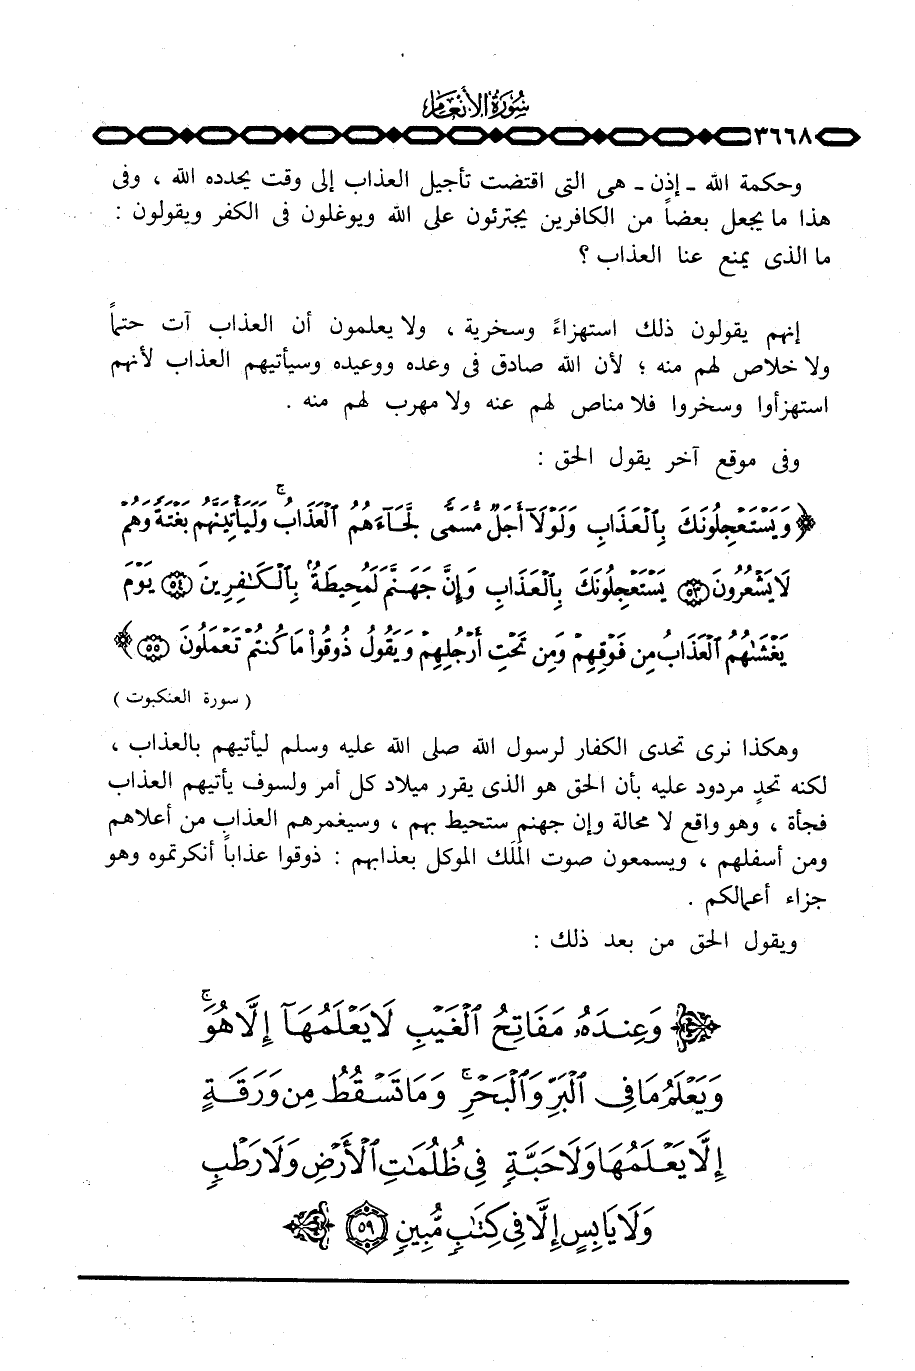 سورة الأنعام
٣٦٦٨
وحكمة الله - إذن - هى التى اقتضت تأجيل العذاب إلى وقت يحدده الله ، وفى
هذا ما يجعل بعضاً من الكافرين يجترئون على الله ويوغلون فى الكفر ويقولون :
ما الذى يمنع عنا العذاب ؟
إنهم يقولون ذلك استهزاءً وسخرية ، ولا يعلمون أن العذاب آت حتماً
ولا خلاص لهم منه ؛ لأن الله صادق فى وعده ووعيده وسيأتيهم العذاب لأنهم
استهزأوا وسخروا فلا مناص لهم عنه ولا مهرب لهم منه .
وفى موقع آخر يقول الحق :
﴿ وَيَسْتَعْجِلُونَكَ بِالْعَذَابِ وَلَوْلَآ أَجَلٌ مُّسَمًّى لَّجَآءَهُمُ ٱلْعَذَابُ ۚ وَلَيَأْتِيَنَّهُم بَغْتَةً وَهُمْ
لَا يَشْعُرُونَ ﴿٥٣﴾ يَسْتَعْجِلُونَكَ بِٱلْعَذَابِ وَإِنَّ جَهَنَّمَ لَمُحِيطَةٌۢ بِٱلْكَـٰفِرِينَ ﴿٥٤﴾ يَوْمَ
يَغْشَىٰهُمُ ٱلْعَذَابُ مِن فَوْقِهِمْ وَمِن تَحْتِ أَرْجُلِهِمْ وَيَقُولُ ذُوقُوا۟ مَا كُنتُمْ تَعْمَلُونَ ﴿٥٥﴾ ﴾
( سورة العنكبوت )
وهكذا نرى تحدى الكفار لرسول الله صلى الله عليه وسلم ليأتيهم بالعذاب ،
لكنه تحدٍ مردود عليه بأن الحق هو الذى يقرر ميلاد كل أمر ولسوف يأتيهم العذاب
فجأة ، وهو واقع لا محالة وإن جهنم ستحيط بهم ، وسيغمرهم العذاب من أعلاهم
ومن أسفلهم ، ويسمعون صوت المَلَك الموكل بعذابهم : ذوقوا عذاباً أنكرتموه وهو
جزاء أعمالكم .
ويقول الحق من بعد ذلك :
وَعِندَهُۥ مَفَاتِحُ ٱلْغَيْبِ لَا يَعْلَمُهَآ إِلَّا هُوَ ۚ
وَيَعْلَمُ مَا فِى ٱلْبَرِّ وَٱلْبَحْرِ ۚ وَمَا تَسْقُطُ مِن وَرَقَةٍ
إِلَّا يَعْلَمُهَا وَلَا حَبَّةٍ فِى ظُلُمَـٰتِ ٱلْأَرْضِ وَلَا رَطْبٍ
وَلَا يَابِسٍ إِلَّا فِى كِتَـٰبٍ مُّبِينٍ ﴿٥٩﴾